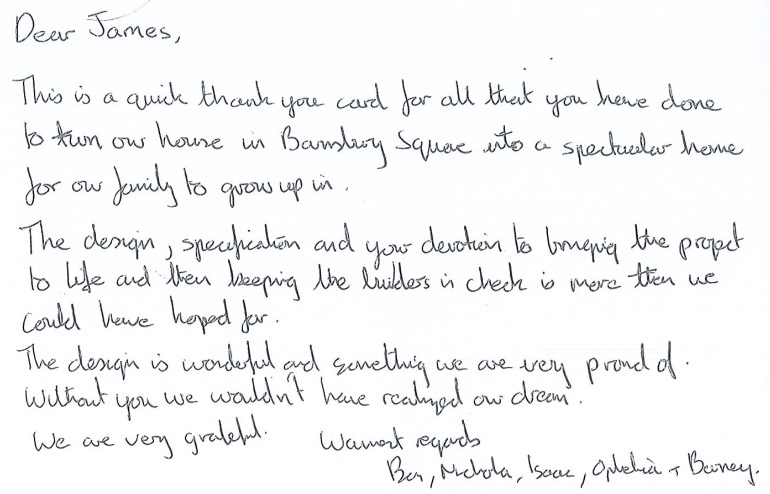 Dear James,
This is a quick thank you card for all that you have done
to turn our house in Barnsbury Square into a spectacular home
for our family to grow up in.
The design, specification and your devotion to bringing the project
to life and then keeping the builders in check is more then we
could have hoped for.
The design is wonderful and something we are very proud of.
Without you we wouldn't have realized our dream.
We are very grateful. Warmest regards
Ben, Nichola, Isaac, Ophelia + Barney.